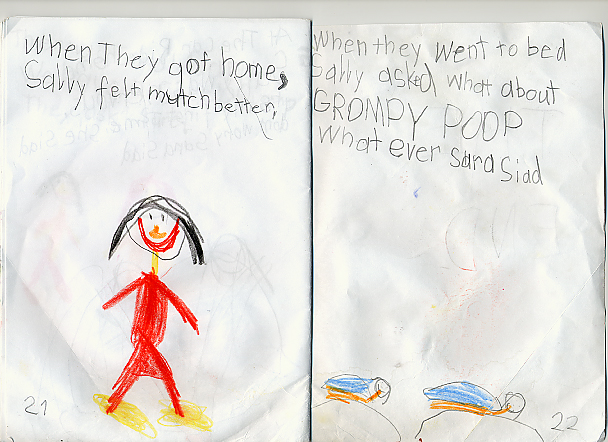 When They got home,
Sally felt mutch better,
21
When they went to bed
Sally asked what about
GROMPY POOP
What ever sara siad
22